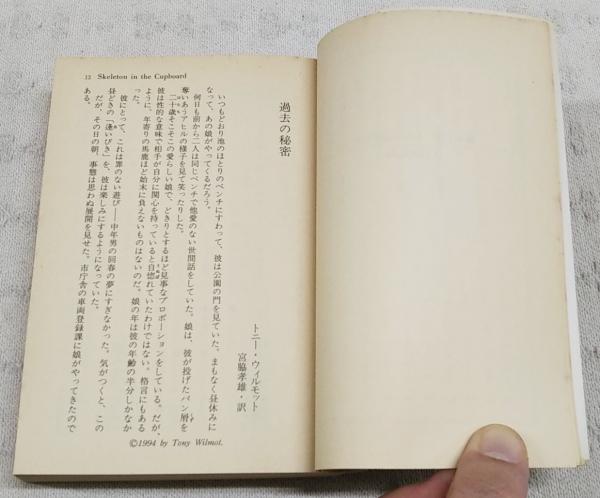 12 Skeleton in the Cupboard
過去の秘密
トニー・ウィルモット
宮脇孝雄・訳
いつもどおり池のほとりのベンチにすわって、彼は公園の門を見ていた。まもなく昼休みに
なって、あの娘がやってくるだろう。
何日も前から二人は同じベンチで他愛のない世間話をしていた。娘は、彼が投げたパン屑を
奪いあうアヒルの様子を見て笑ったりした。
二十歳そこそこの愛らしい娘で、どきりとするほど見事なプロポーションをしている。だが、
彼は性的な意味で相手が自分に関心を持っていると自惚れていたわけではない。格言にもある
ように、年寄りの馬鹿ほど始末に負えないものはないのだ。娘の年は彼の年齢の半分しかなか
った。
彼にとって、これは罪のない遊び──中年男の回春の夢にすぎなかった。気がつくと、この
昼どきの「逢いびき」を、彼は楽しみにするようになっていた。
だが、その日の朝、事態は思わぬ展開を見せた。市庁舎の車両登録課に娘がやってきたので
ある。
©1994 by Tony Wilmot.